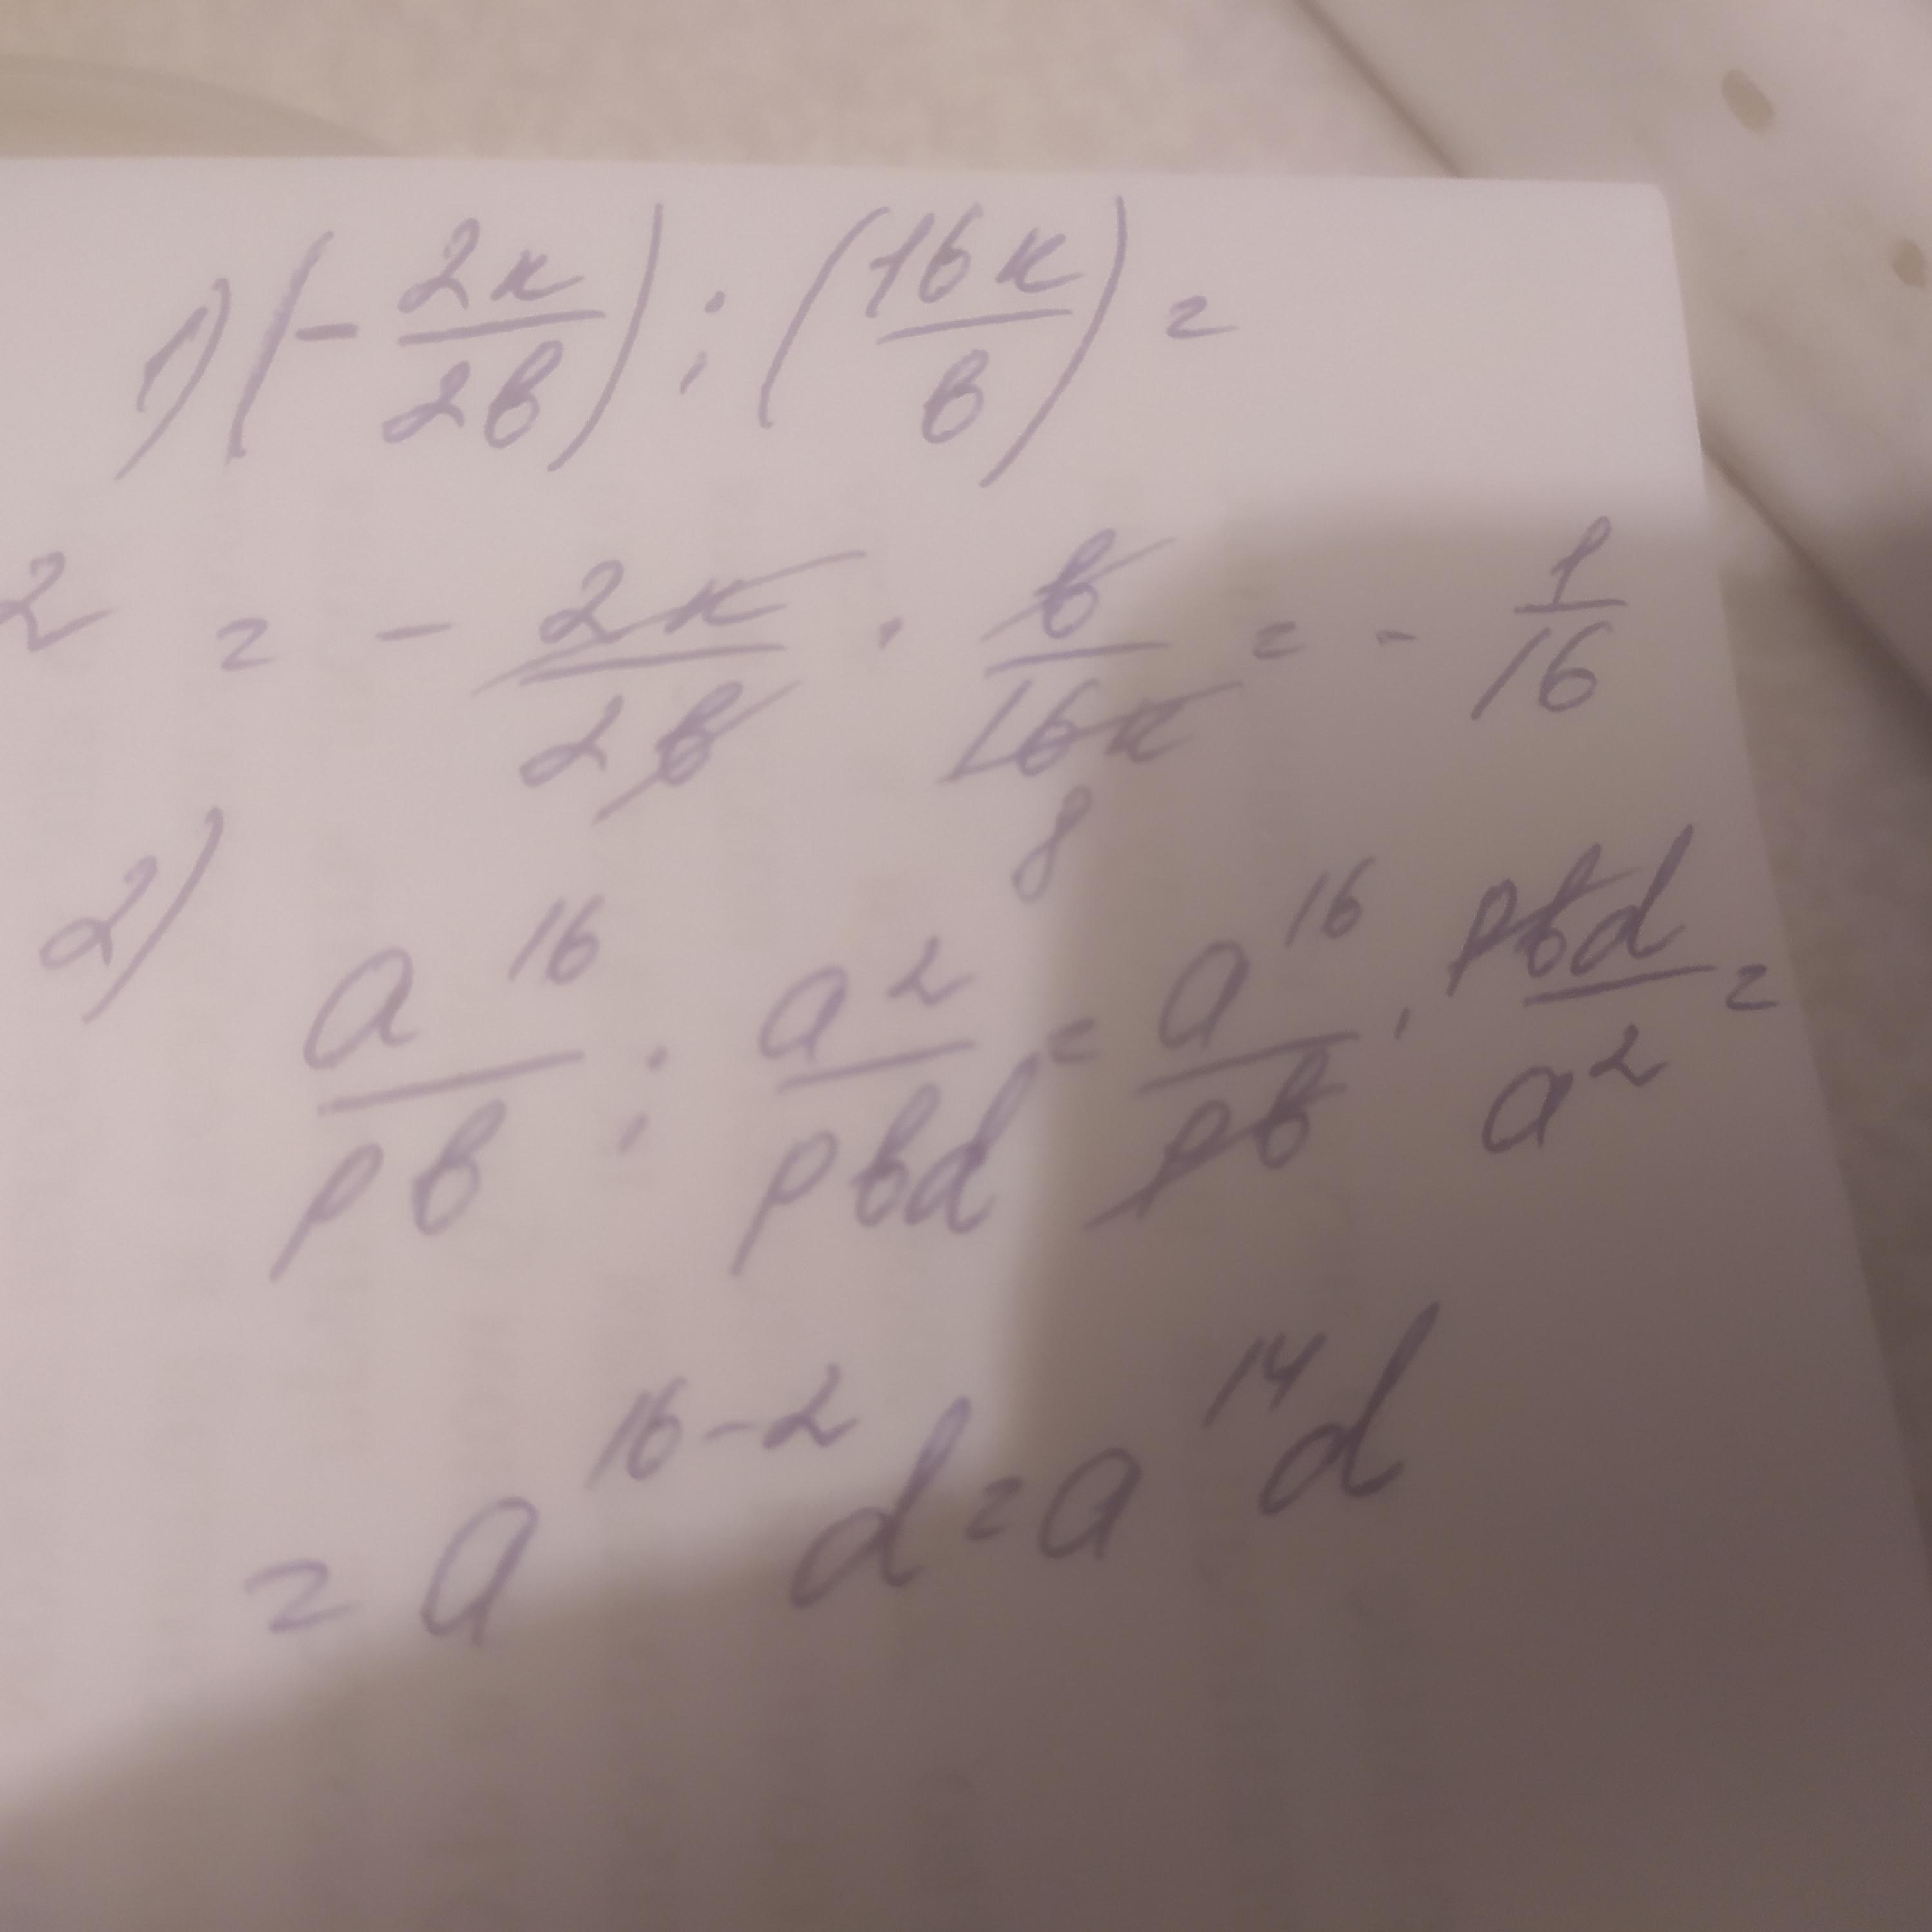 1) (- 2к/2в) : (16к/в) =
2 = - 2к/2в · в/16к = - 1/16
8
2) a^16/pв : a^2/pвd = a^16/pв · pвd/a^2 =
= a^16-2 d = a^14 d